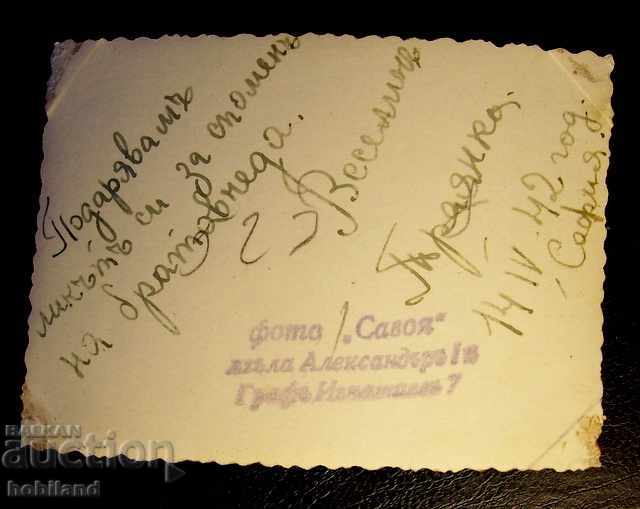 Подарявамъ
ликътъ си за споменъ
на братовчеда
Веселинъ
Траянка
14 IV. 42 год.
София.
фото „Савоя“
ъгъла Александъръ I и
Графъ Игнатиевъ 7
BALKAN
auction
hobiland